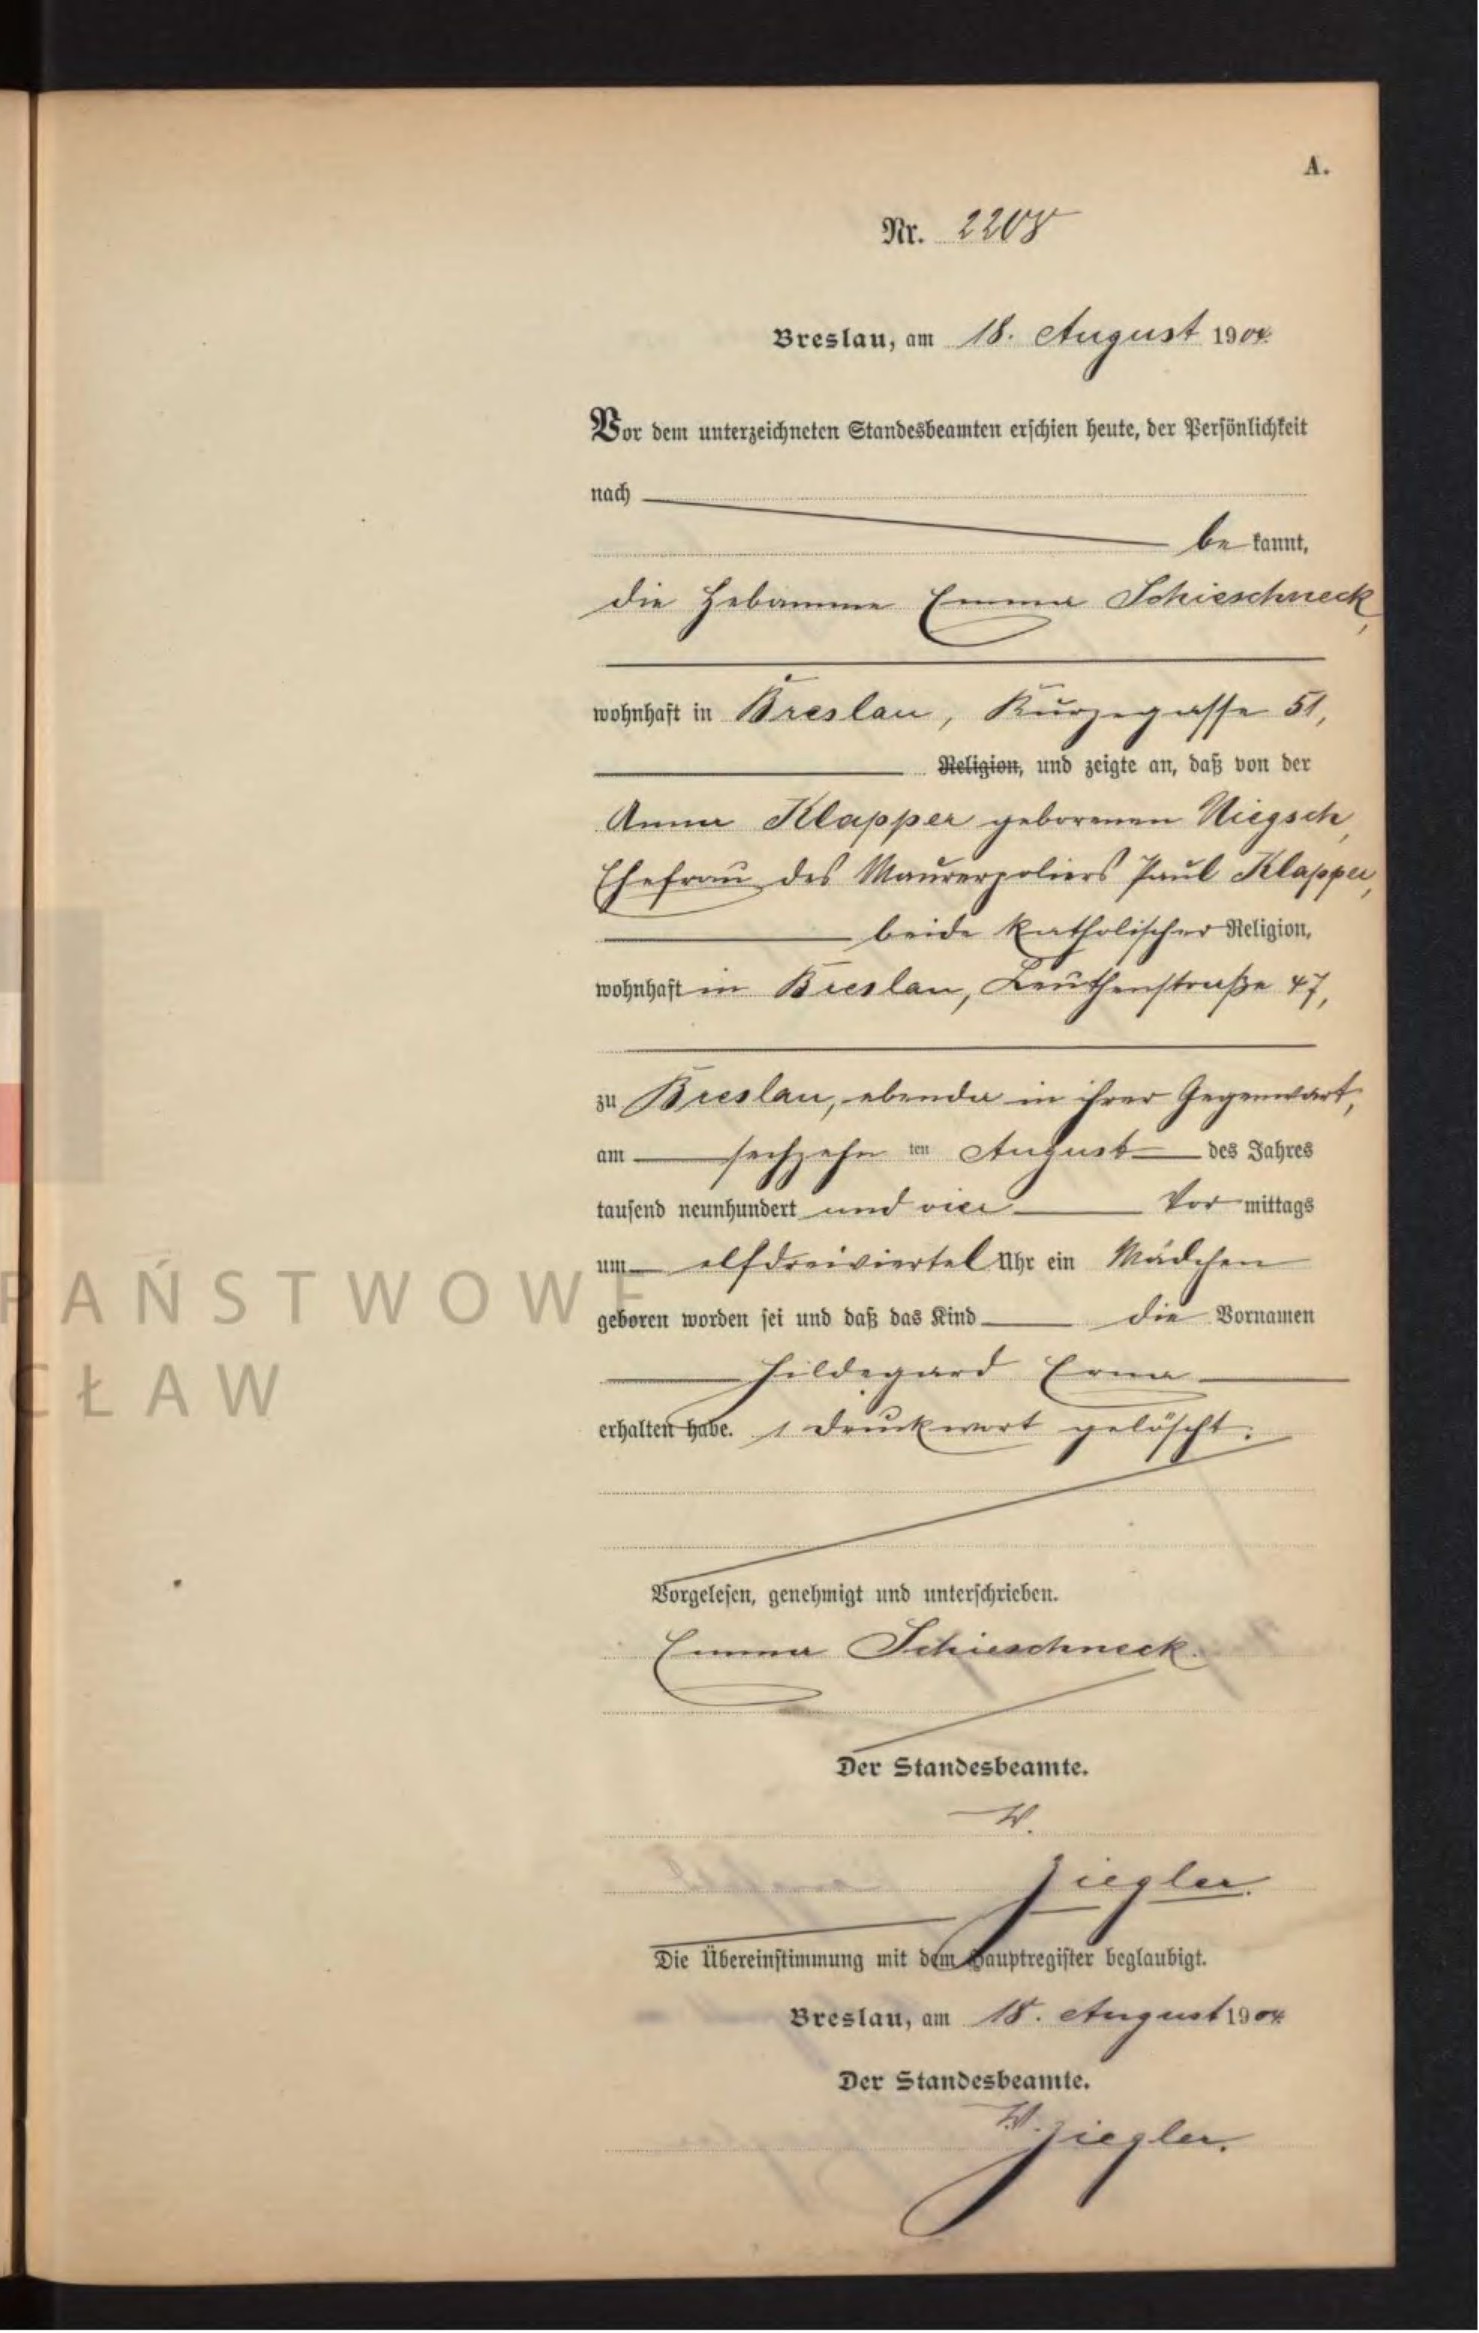 A.
Nr. 2208
Breslau, am 18. August 1904.
Vor dem unterzeichneten Standesbeamten erschien heute, der Persönlichkeit
nach
be kannt,
die Hebamme Emma Schieschneck,
wohnhaft in Breslau, Kurzegasse 51,
Religion, und zeigte an, daß von der
Anna Klapper geborenen Niegsch,
Ehefrau des Maurerpoliers Paul Klapper,
beide katholischer Religion,
wohnhaft in Breslau, Leuthenstraße 47,
zu Breslau, ebenda in ihrer Gegenwart,
am sechzehn ten August des Jahres
tausend neunhundert und vier Vor mittags
um elfdreiviertel Uhr ein Mädchen
geboren worden sei und daß das Kind die Vornamen
Hildegard Erna
erhalten habe. 1 Druckwort gelöscht.
Vorgelesen, genehmigt und unterschrieben.
Emma Schieschneck.
Der Standesbeamte.
Ziegler.
Die Übereinstimmung mit dem Hauptregister beglaubigt.
Breslau, am 18. August 1904.
Der Standesbeamte.
Ziegler.
PAŃSTWOWE
CŁAW